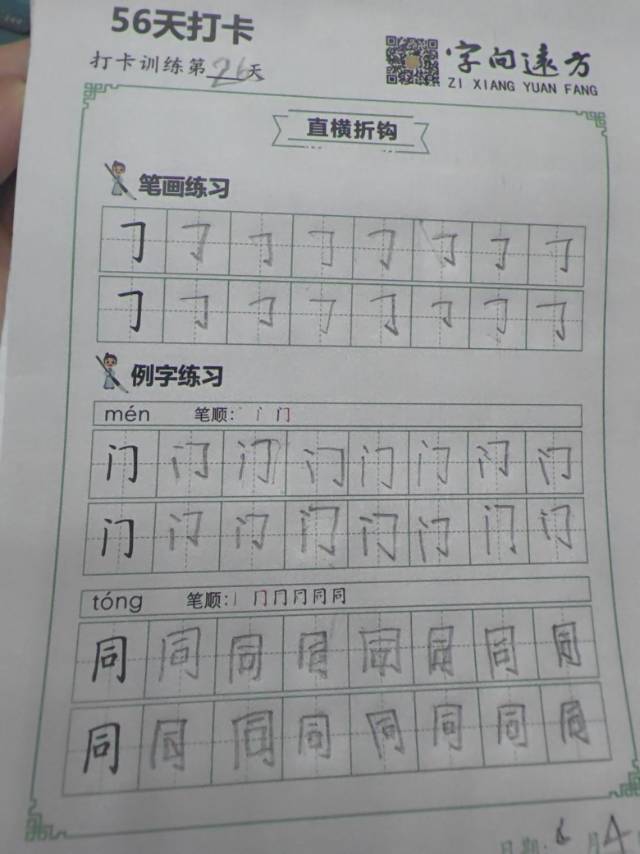 56天打卡
打卡训练第26天
字向远方
ZI XIANG YUAN FANG
直横折钩
笔画练习
𠃌 𠃌 𠃌 𠃌 𠃌 𠃌 𠃌 𠃌
𠃌 𠃌 𠃌 𠃌 𠃌 𠃌 𠃌 𠃌
例字练习
mén 笔顺: 丶 门
门 门 门 门 门 门 门 门
门 门 门 门 门 门 门 门
tóng 笔顺: 丨 冂 冂 冃 同 同
同 同 同 同 同 同 同 同
同 同 同 同 同 同 同 同
日期: 月4